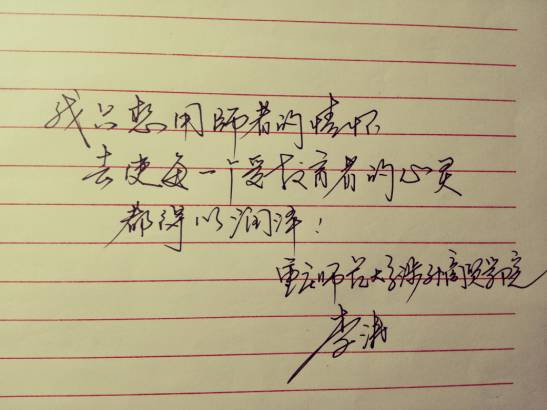 我只想用师者的情怀
去使每一个受教育者的心灵
都得以润泽！
重庆师范大学涉外商贸学院
李涛